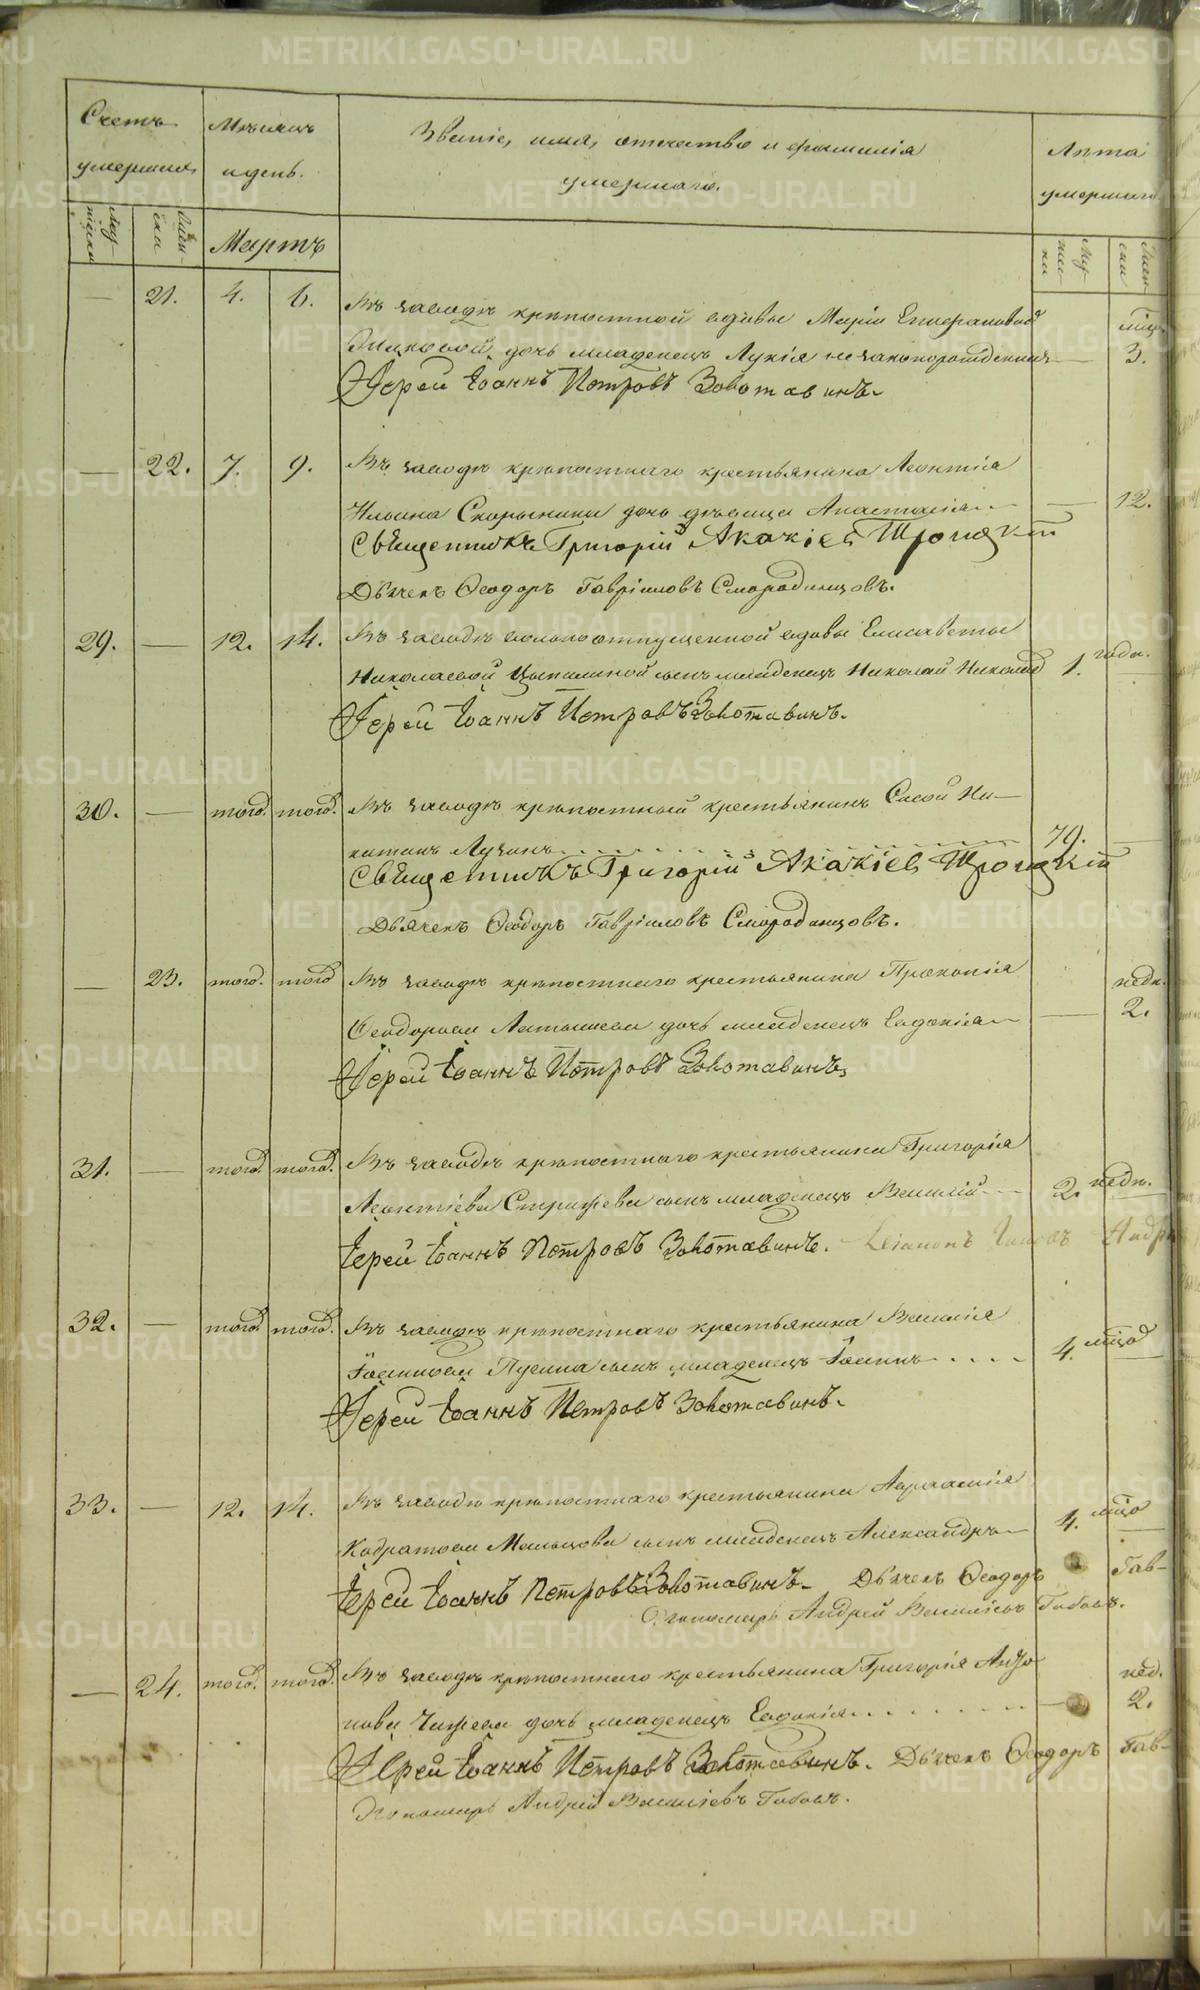 METRIKI.GASO-URAL.RU
Счетъ умершихъ
Мѣсяцъ и день.
Званіе, имя, отчество и фамилія
умершаго.
Лѣта умершаго
Мартъ
— 21. 4. 6. Въ заводѣ крѣпостной вдовы Маріи
дочь младенецъ Лукія незаконорожденная — мѣс. 3.
Іерей Іоаннъ Петровъ Золотавинъ.
— 22. 7. 9. Въ заводѣ крѣпостнаго крестьянина Леонтія
Ильина Скорынина дочь дѣвица Анастасія — 12.
Священникъ Григорій Акакіев Троицкій
Дьячекъ Ѳеодоръ Гавріиловъ Смородинцовъ.
29. — 12. 14. Въ заводѣ вольноотпущенной вдовы Елисаветы
Николаевой сынъ младенецъ Николай 1. годъ.
Іерей Іоаннъ Петровъ Золотавинъ.
30. — тогод. тогод. Въ заводѣ крѣпостный крестьянинъ Савой Ни-
китинъ Лузинъ 79. —
Священникъ Григорій Акакіев Троицкій
Дьячекъ Ѳеодоръ Гавріиловъ Смородинцовъ.
— 23. тогод. тогод Въ заводѣ крѣпостнаго крестьянина Прокопія
Ѳеодорова дочь младенецъ Евдокія — недѣ. 2.
Іерей Іоаннъ Петровъ Золотавинъ.
31. — тогод. тогод. Въ заводѣ крѣпостнаго крестьянина Григорія
Леонтіева Стрижева сынъ младенецъ Василій 2. недѣ.
Іерей Іоаннъ Петровъ Золотавинъ.
32. — тогод. тогод. Въ заводѣ крѣпостнаго крестьянина Василія
Іоаннова сынъ младенецъ Іоаннъ 4. мѣцов
Іерей Іоаннъ Петровъ Золотавинъ.
33. — 12. 14. Въ заводѣ крѣпостнаго крестьянина Авраамія
Кодратова Мальцова сынъ младенецъ Александръ 4. мѣцо
Іерей Іоаннъ Петровъ Золотавинъ. Дьячекъ Ѳеодоръ Гав-
Пономарь Андрей Василіевъ
— 24. тогод. тогод. Въ заводѣ крѣпостнаго крестьянина Григорія Андро
нова Чижова дочь младенецъ Евдокія — нед. 2.
Іерей Іоаннъ Петровъ Золотавинъ. Дьячекъ Ѳеодоръ Гав-
Пономарь Андрей Василіевъ